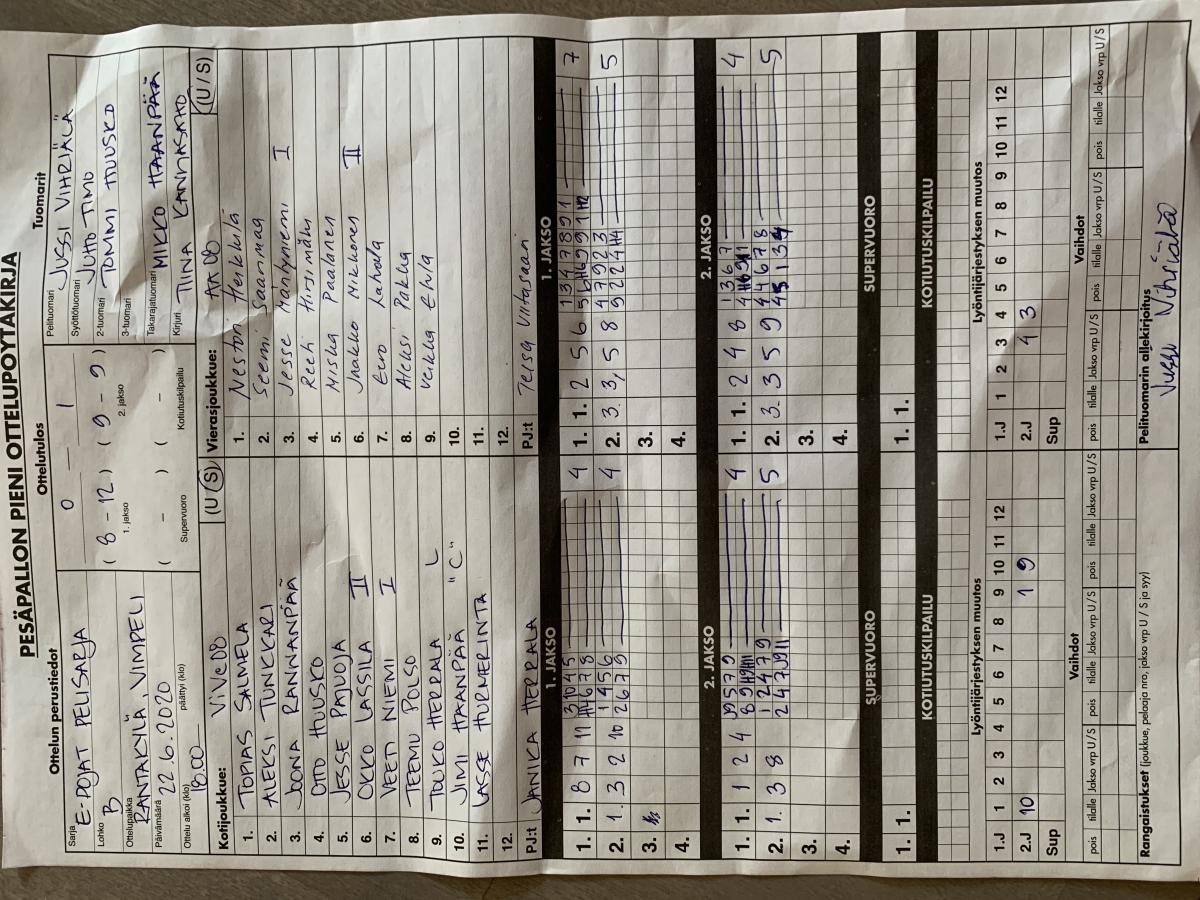 PESÄPALLON PIENI OTTELUPÖYTÄKIRJA
Ottelun perustiedot
Sarja E-POJAT PELISARJA
Lohko B
Ottelupaikka RANTAKYLÄ, VIMPELI
Päivämäärä 22.6.2020
Ottelu alkoi (klo) päättyi (klo)
18.00
Ottelutulos
0 — 1
(8 - 12) (9 - 9)
1. jakso 2. jakso
( - ) ( - )
Supervuoro Kotiutuskilpailu
Tuomarit
Pelituomari JUSSI VIHRIÄLÄ
Syöttötuomari JUHO TIMO
2-tuomari TOMMI HUUSKO
3-tuomari
Takarajatuomari MIKKO HAANPÄÄ
Kirjuri TIINA KANNASAHO
Kotijoukkue: ViVe08 (U / S)
1. TOPIAS SALMELA
2. ALEKSI TUNKKARI
3. JOONA RANNANPÄÄ
4. OTTO HUUSKO
5. JESSE PAJUOJA
6. OKKO LASSILA II
7. VEETI NIEMI I
8. TEEMU POLSO
9. TOUKO HERRALA L
10. JIMI HAANPÄÄ "C"
11. LASSE HURMERINTA
12.
PJ:t JANIKA HERRALA
Vierasjoukkue: AA 08 (U / S)
1. Nestori Henkkula
2. Seemi Saarimaa
3. Jesse Mäntyniemi I
4. Reeti Hirsimäki
5. Miska Paalanen
6. Jaakko Nikkonen II
7. Eero
8. Aleksi Pakka
9. Veikka
10.
11.
12.
PJ:t Teija Viitasaari
1. JAKSO
1. 1. 8 7 11 4
2. 1. 3 2 10 4
3.
4.
1. JAKSO
1. 1. 2 5 6 7
2. 3. 3, 5 8 5
3.
4.
2. JAKSO
1. 1. 1 2 4 4
2. 1. 3 8 5
3.
4.
2. JAKSO
1. 1. 2 4 8 4
2. 3. 3 5 9 5
3.
4.
SUPERVUORO
1. 1.
SUPERVUORO
1. 1.
KOTIUTUSKILPAILU
KOTIUTUSKILPAILU
Lyöntijärjestyksen muutos
1.J 1 2 3 4 5 6 7 8 9 10 11 12
2.J 10 1 9
Sup
Lyöntijärjestyksen muutos
1.J 1 2 3 4 5 6 7 8 9 10 11 12
2.J 4 3
Sup
Vaihdot
pois tilalle Jakso vrp U / S pois tilalle Jakso vrp U / S pois tilalle Jakso vrp U / S
Vaihdot
pois tilalle Jakso vrp U / S pois tilalle Jakso vrp U / S pois tilalle Jakso vrp U / S
Rangaistukset (joukkue, pelaaja nro, jakso vrp U / S ja syy)
Pelituomarin allekirjoitus
Jussi Vihriälä